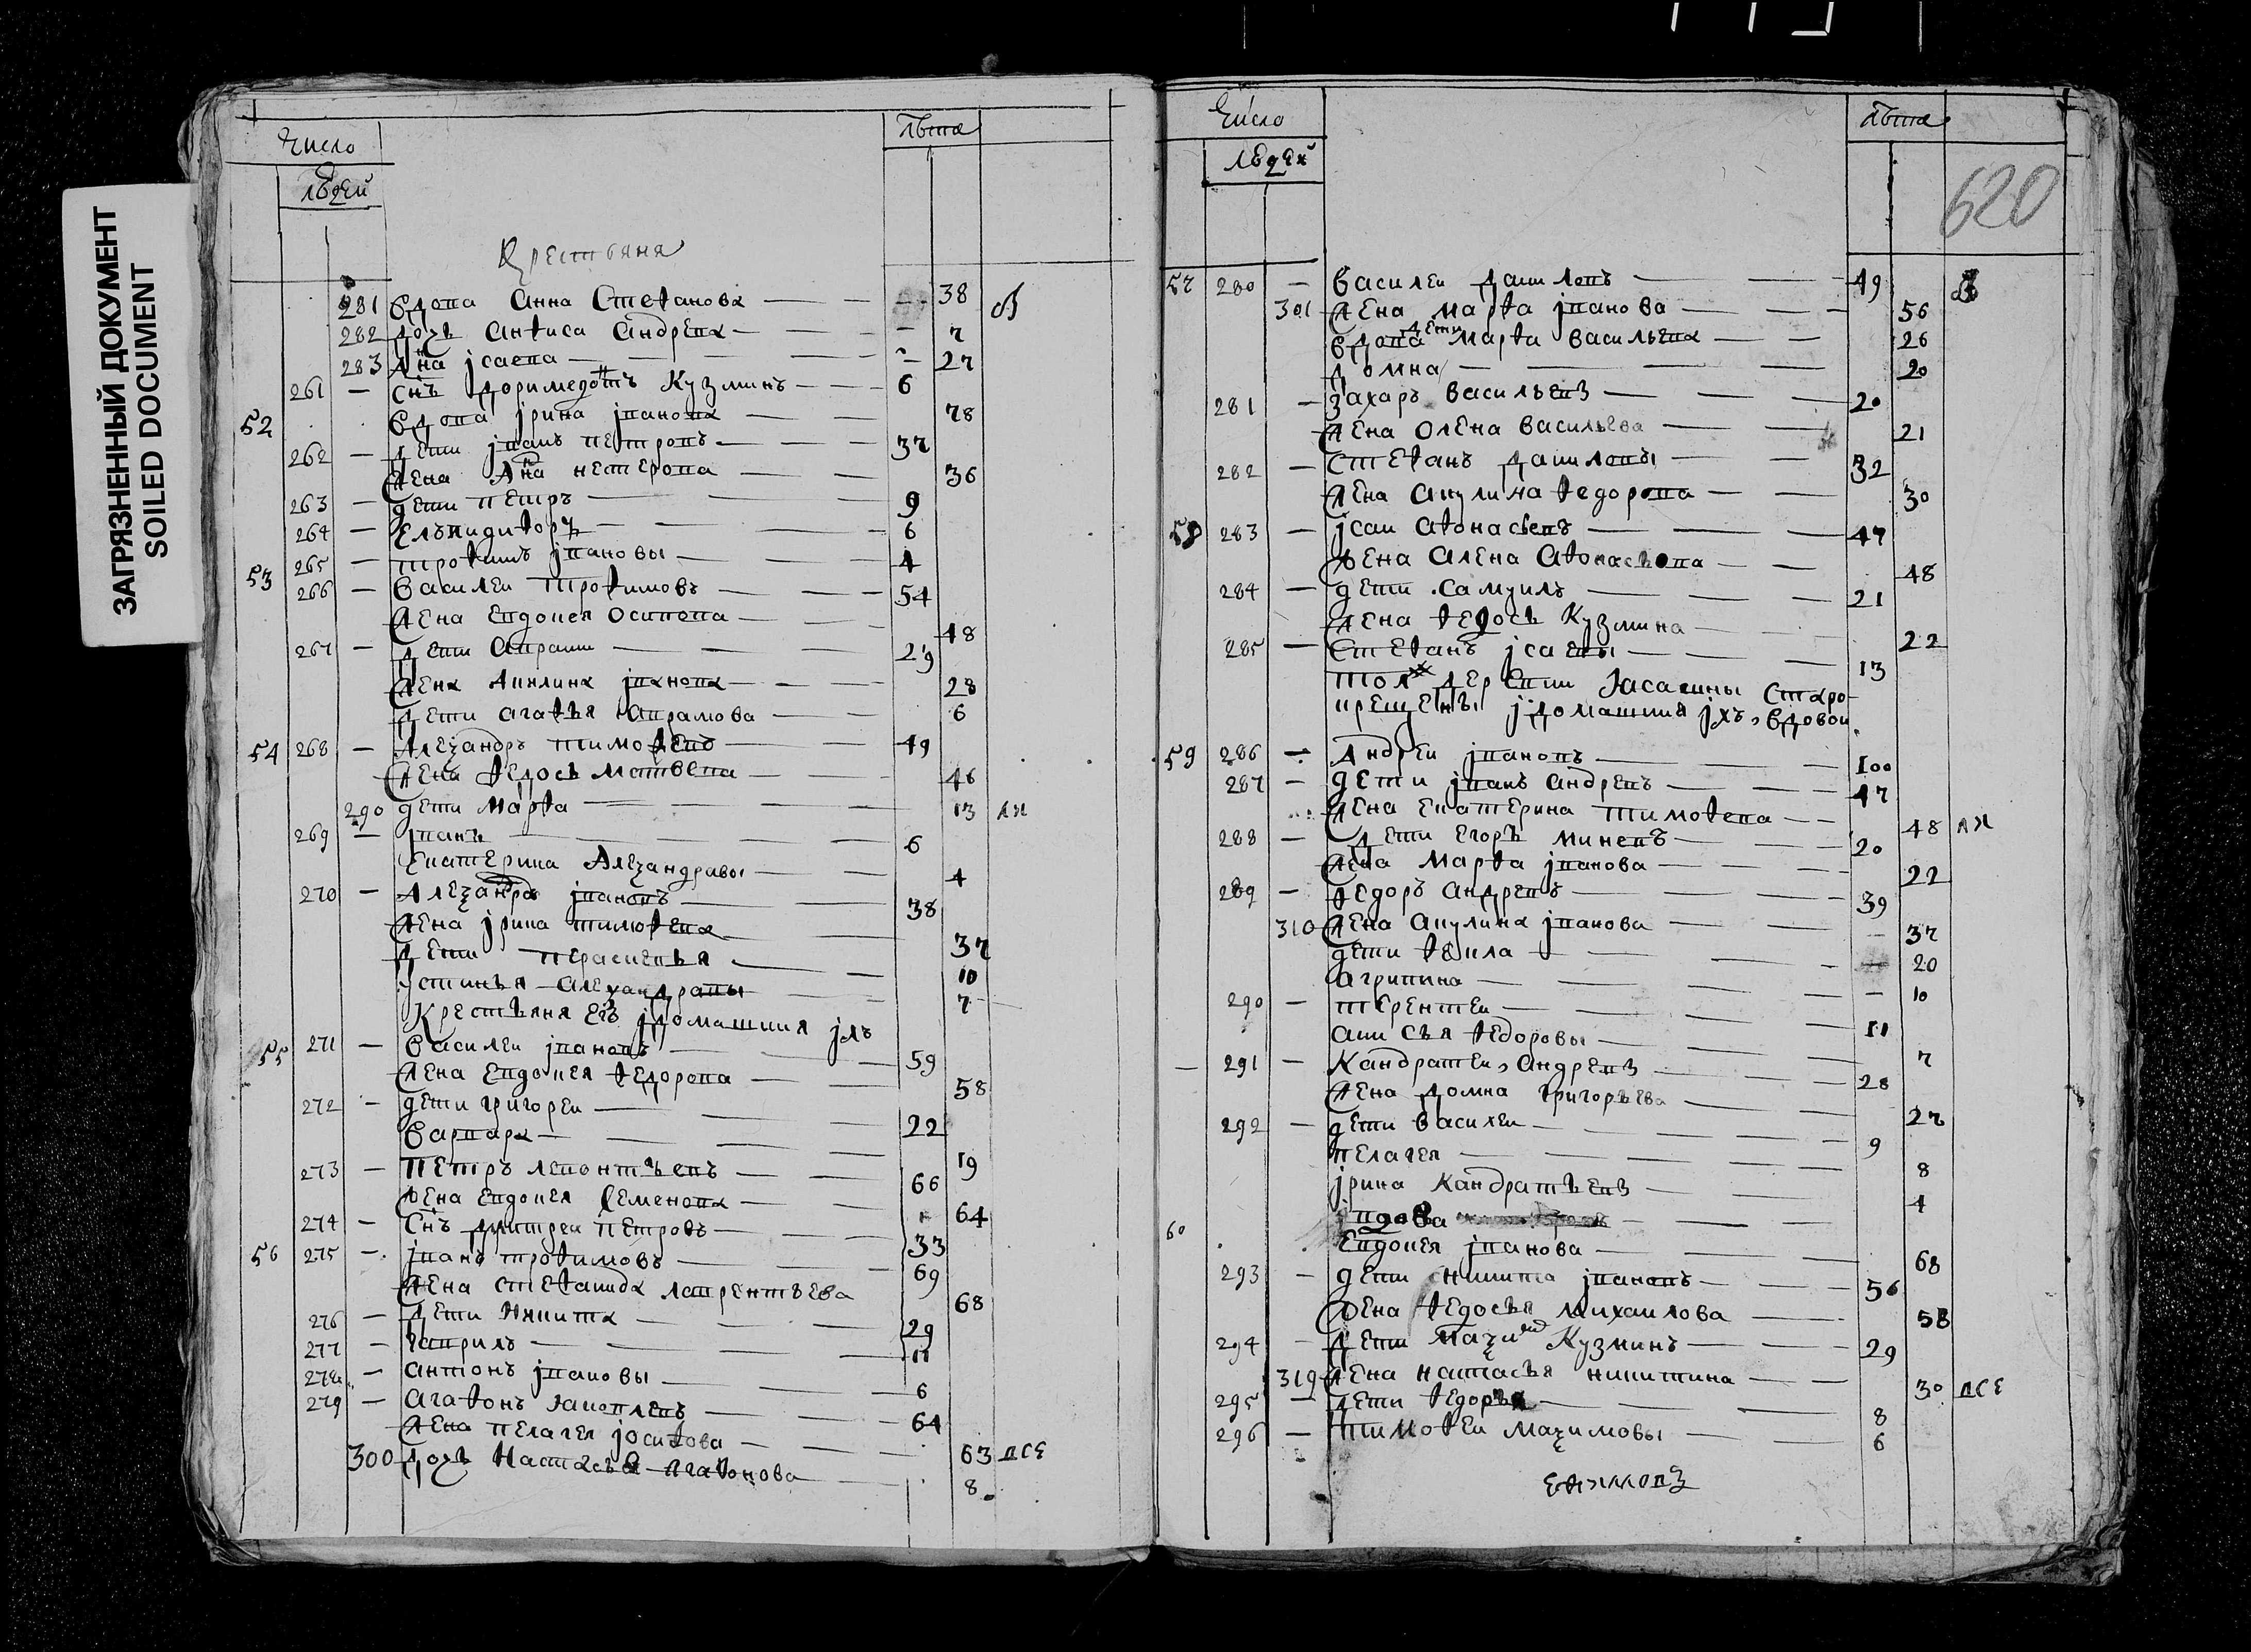 ЗАГРЯЗНЕННЫЙ ДОКУМЕНТ
SOILED DOCUMENT
Число
лѣта
людей
Крестьяня
281 вдова Анна Стефанова — 38 В
282 дочь Анфиса Андрева — 7
283 Анна Ісаева — 27
261 — Снъ Доримедонтъ Кузминъ — 6
52 вдова Ірина Іванова — 78
262 — дети Іванъ Петровъ — 37
жена Анна Нестерова — 36
263 — дети Петръ — 9
264 — Елъпидифоръ — 6
265 — Трофимъ Івановы — 4
53 266 — Василеи Трофимовъ — 54
жена Евдокея Осипова — 48
267 — дети Аврамъ — 29
жена Акилина Іванова — 28
дети Агафья Аврамова — 6
54 268 — Алеѯандръ Тимофевъ — 49
жена Федосья Матвева — 46
290 дети Марфа — 13
269 — Іванъ — 6
Екатерина Алеѯандравы — 4
270 — Алеѯандръ Івановъ — 38
жена Ірина Тимофева — 37
дети Пераскевья — 10
Устинья Алеѯандравы — 7
Крестьяня Егѡ ідомашния іхъ
55 271 — Василеи Івановъ — 59
жена Евдокея Федорова — 58
272 — дети Григореи — 22
Варвара — 19
273 — Петръ Левонтьевъ — 66
жена Евдокея Семенова — 64
274 — Снъ Дмитреи Петровъ — 33
56 275 — Іванъ Трофимовъ — 69
жена Стефанида Лаврентьева 68
276 — дети Никита — 29
277 — Гаврилъ — 11
278 — Антонъ Івановы — 6
279 — Агафонъ Яковлевъ — 64
жена Пелагея Іосифова — 63 все
300 дочь Настасья Агафонова — 8
Число
лѣта
людей
620
57 280 — Василеи Даниловъ — 49 В
301 жена Марфа Іванова — 56
дети
вдова Марфа Васильева — 26
Домна — 20
281 — Захаръ Васильевъ — 20
жена Олена Васильева — 21
282 — Стефанъ Даниловъ — 32
жена Акулина Федорова — 30
58 283 — Ісаи Афонасьевъ — 47
жена Алена Афонасьева — 48
284 — дети Самуилъ — 21
жена Федосья Кузмина — 22
285 — Стефанъ Ісаевы — 13
той же деревни Ясашны Старо-
крещены ідомашния іхъ, вдовои
59 286 — Андреи Івановъ — 100
287 — дети Іванъ Андревъ — 47
жена Екатерина Тимофева — 48
288 — дети Егоръ Миневъ — 20
жена Марфа Іванова — 22
289 — Федоръ Андревъ — 39
310 жена Акулина Іванова — 37
дети Фекла — 20
Агрипина — 10
290 — Терентеи — 11
Анисья Федоровы — 7
291 — Кандратеи, Андревъ — 28
жена Домна Григорьева — 27
292 — дети Василеи — 9
Пелагея — 8
Ірина Кандратьевъ — 4
60 вдова
Евдокея Іванова — 68
293 — дети Никита Івановъ — 56
жена Федосья Михаилова — 58
294 — дети Маѯимъ Кузминъ — 29
319 жена Настасья Никитина — 30 все
295 — дети Федоръ — 8
296 — Тимофеи Маѯимовы — 6
Ефимовъ